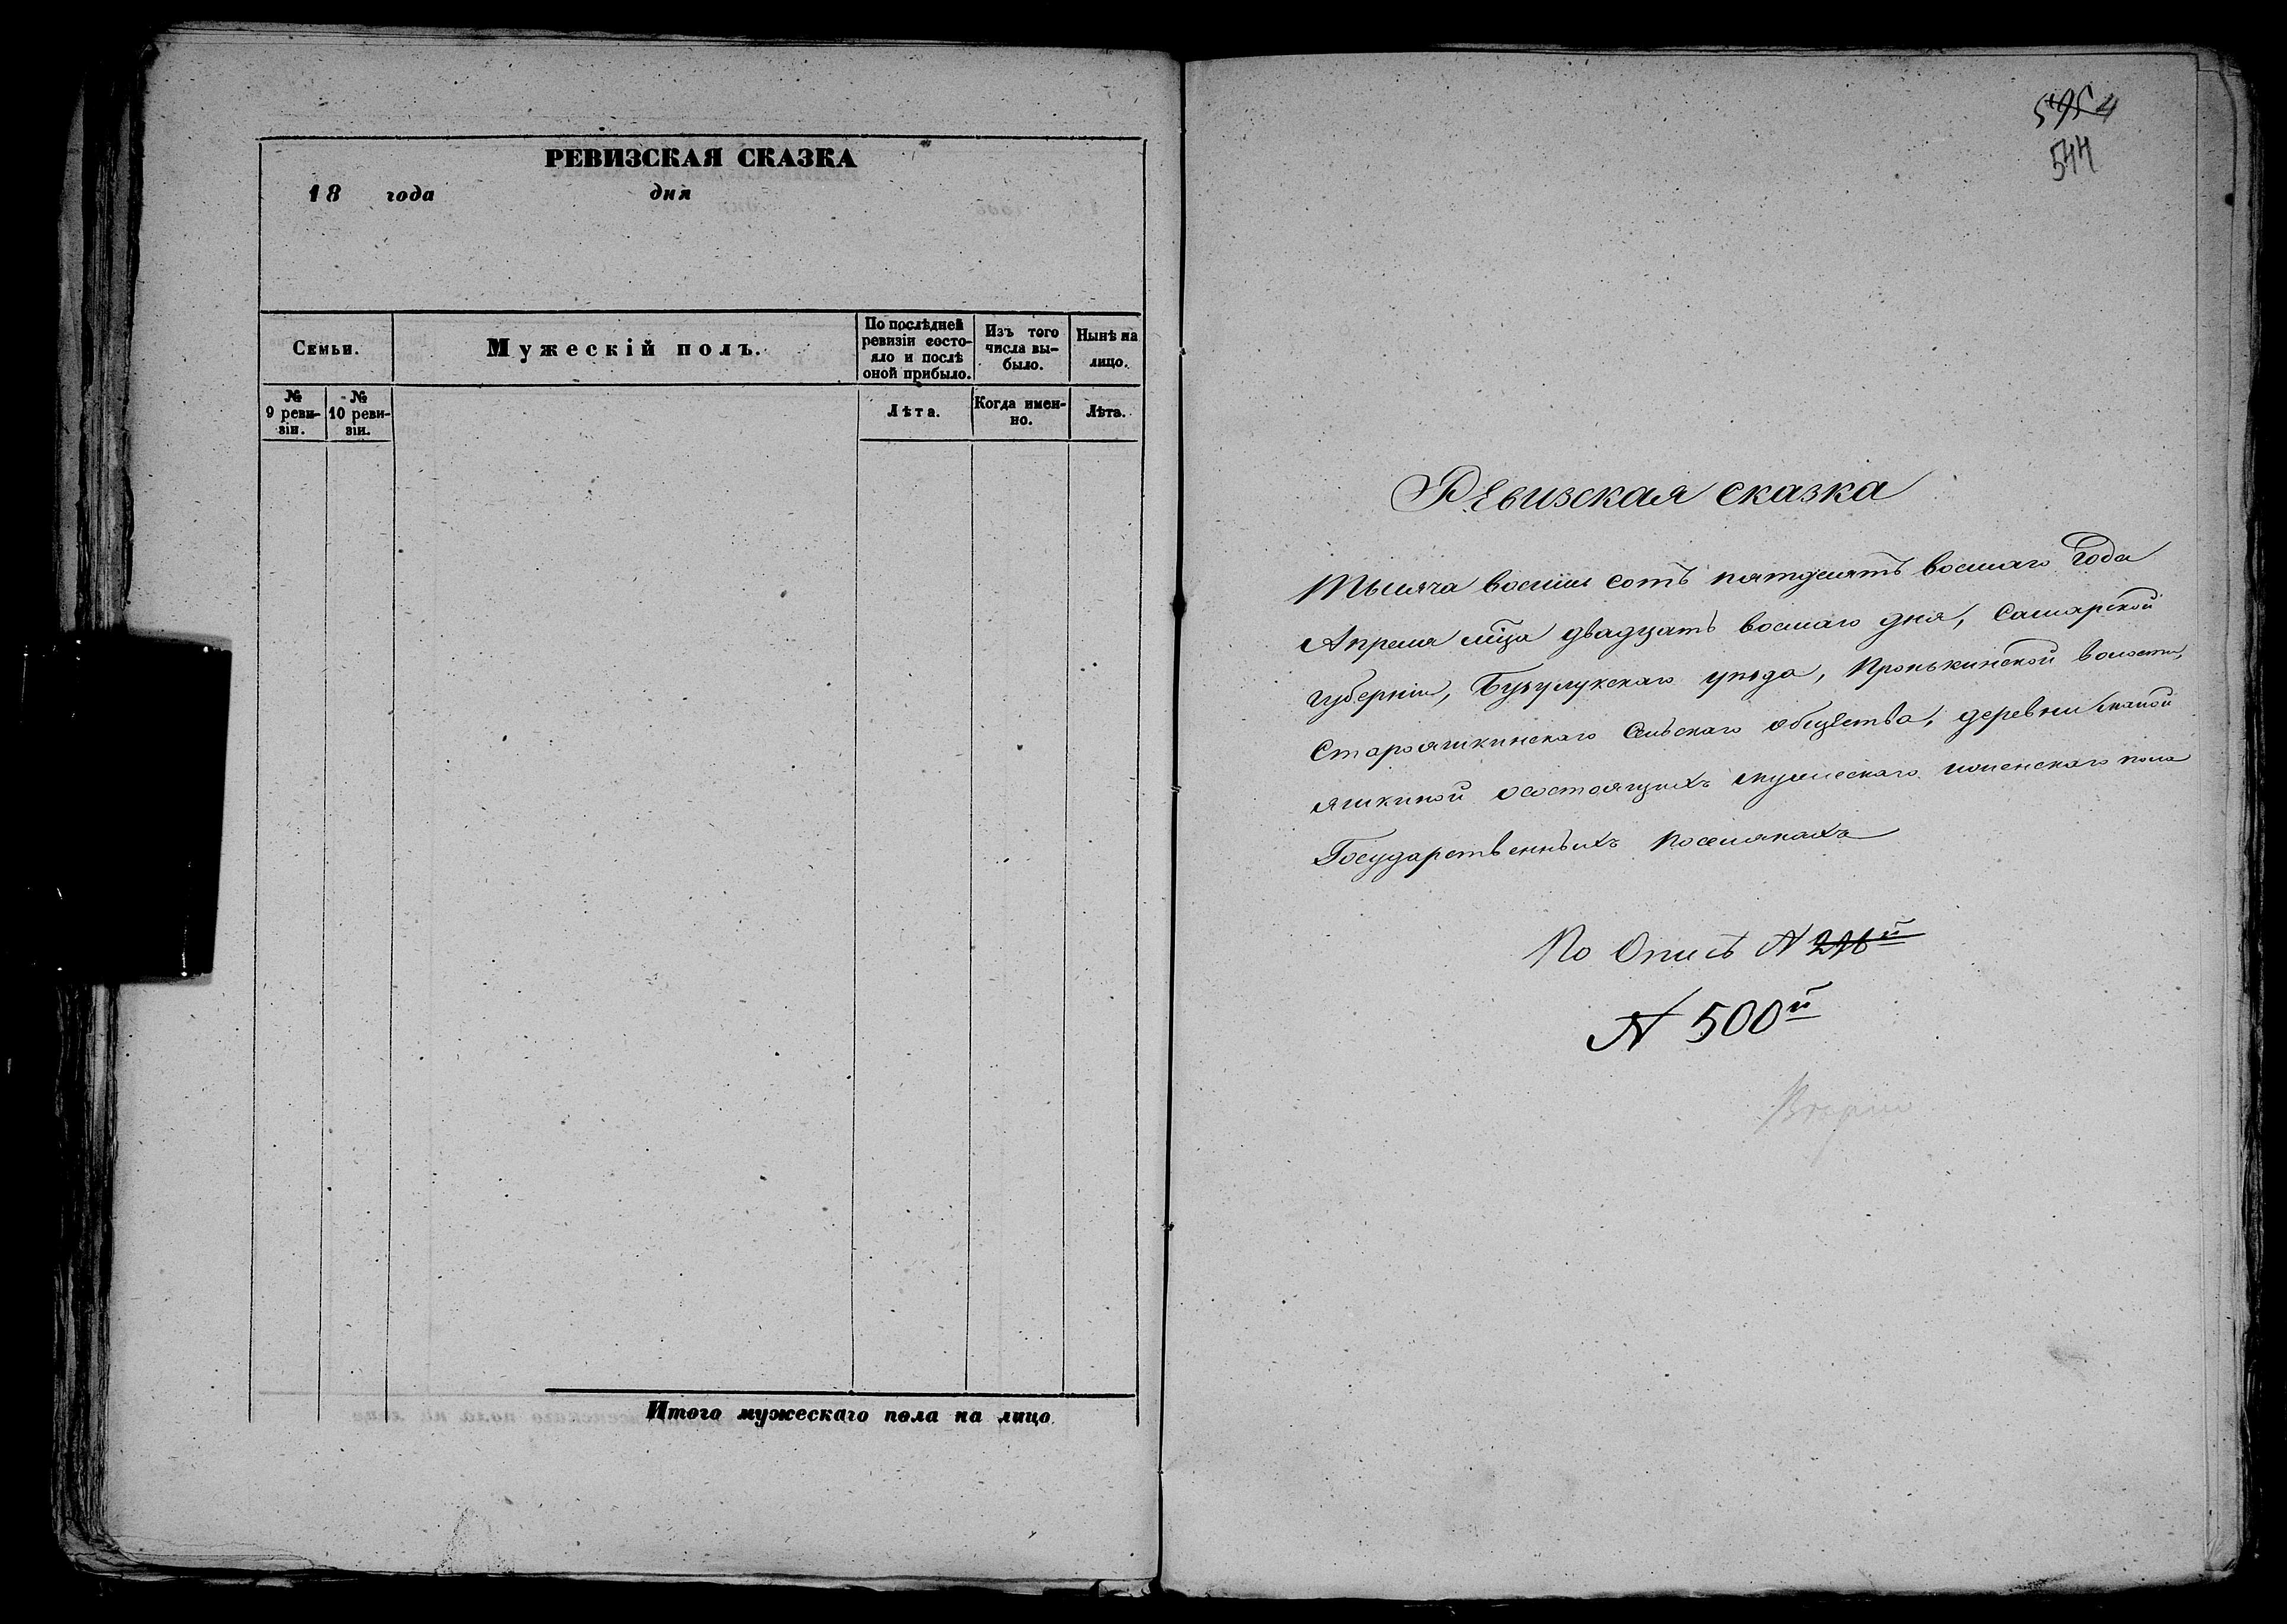 РЕВИЗСКАЯ СКАЗКА
18 года дня
Семьи.
Мужескій полъ.
По послѣдней ревизіи состо-
яло и послѣ оной прибыло.
Изъ того числа вы-
было.
Нынѣ на лицо.
№ 9 реви-
зіи.
№ 10 реви-
зіи.
Лѣта.
Когда имен-
но.
Лѣта.
Итого мужескаго пола на лицо
544
Ревизская сказка
Тысяча восемь сотъ пятдесятъ восмаго года
Апреля мца двадцать восмаго дня, Самарской
губерніи, Бузулукскаго уѣзда, Пронькинской волости,
Старояшкинскаго Сельскаго общества, деревни
яшкиной осостоящихъ мужескаго иженскаго пола
Государственныхъ Поселянахъ
По Описѣ № 226й
№ 500й